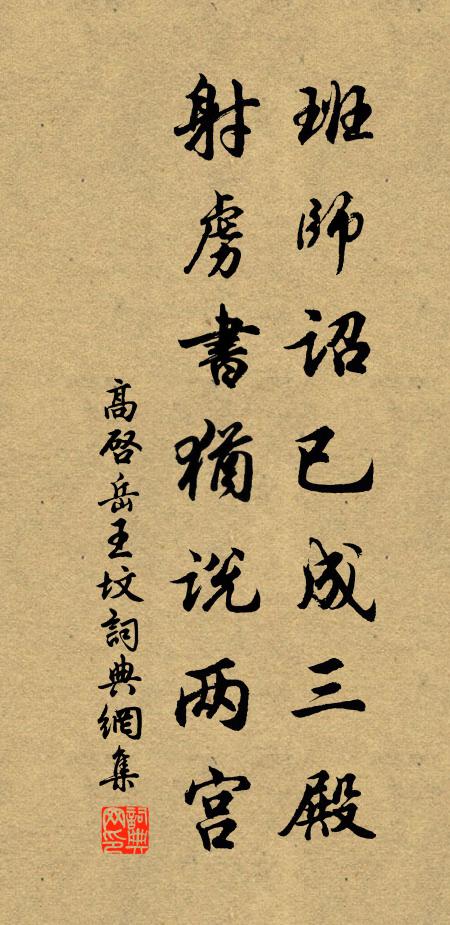 班师诏已成三殿
射虏书犹说两宫
高启岳王坟词典網集
詞典网印